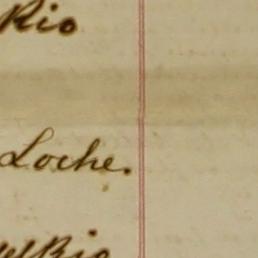 Rio
Loche.
Rio